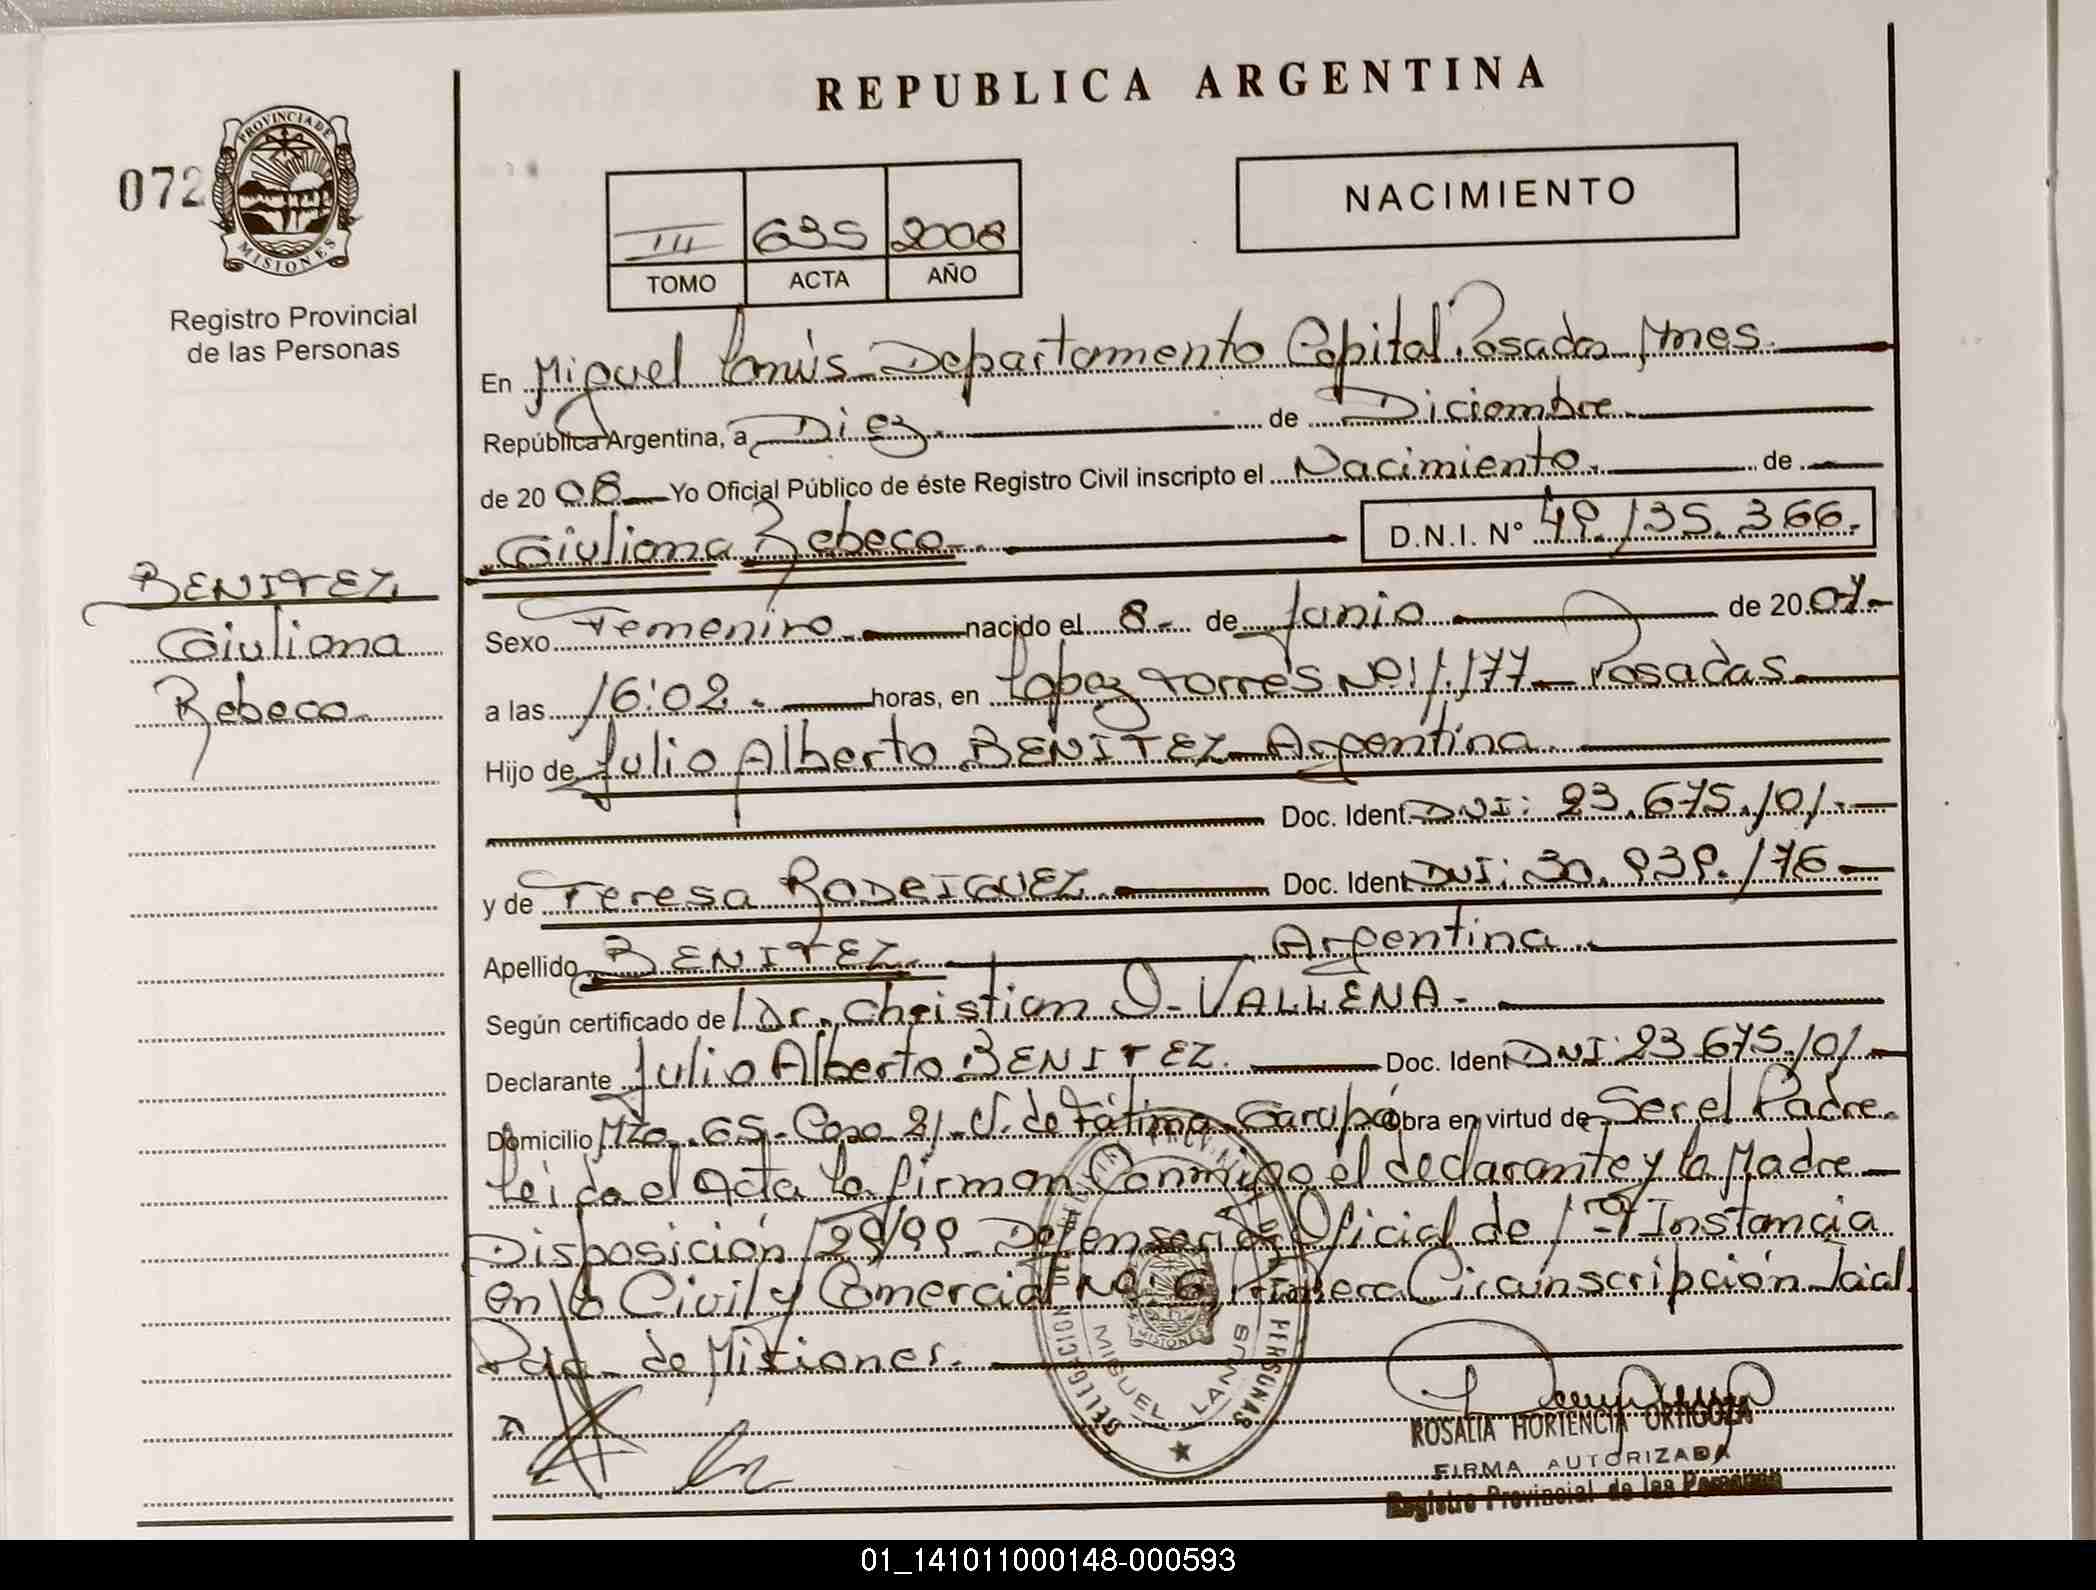 REPUBLICA ARGENTINA
072
PROVINCIA DE MISIONES
Registro Provincial
de las Personas
III 635 2008
TOMO ACTA AÑO
NACIMIENTO
En Miguel Lanús Departamento Capital Posadas Mnes.
República Argentina, a Diez de Diciembre
de 2008 Yo Oficial Público de éste Registro Civil inscripto el Nacimiento. de
Giuliana Rebeca D.N.I. N° 49.135.366.
BENITEZ
Giuliana
Rebeca
Sexo Femenino nacido el 8 de Junio de 2007
a las 16:02 horas, en Lopez Torres Nº 1.177 Posadas
Hijo de Julio Alberto BENITEZ Argentina
Doc. Ident DNI: 23.675.101
y de Teresa RODRIGUEZ Doc. Ident DNI: 30.939.176
Apellido BENITEZ Argentina
Según certificado de Dr. Christian O. VALLENA
Declarante Julio Alberto BENITEZ. Doc. Ident DNI 23.675.101
Domicilio Mza. 65 Casa 21 V. de Fátima Garupá Obra en virtud de Ser el Padre.
Leida el Acta la firman Conmigo el declarante y la Madre
Disposición 129/99 Defensoría Oficial de 1ra Instancia
en lo Civil y Comercial Nº 6 Primera Circunscripción
de Misiones.
DELEGACION MIGUEL LANUS
PERSONAS
MISIONES
ROSALIA HORTENCIA ORTIGOZA
FIRMA AUTORIZADA
Registro Provincial de las Personas
01_141011000148-000593